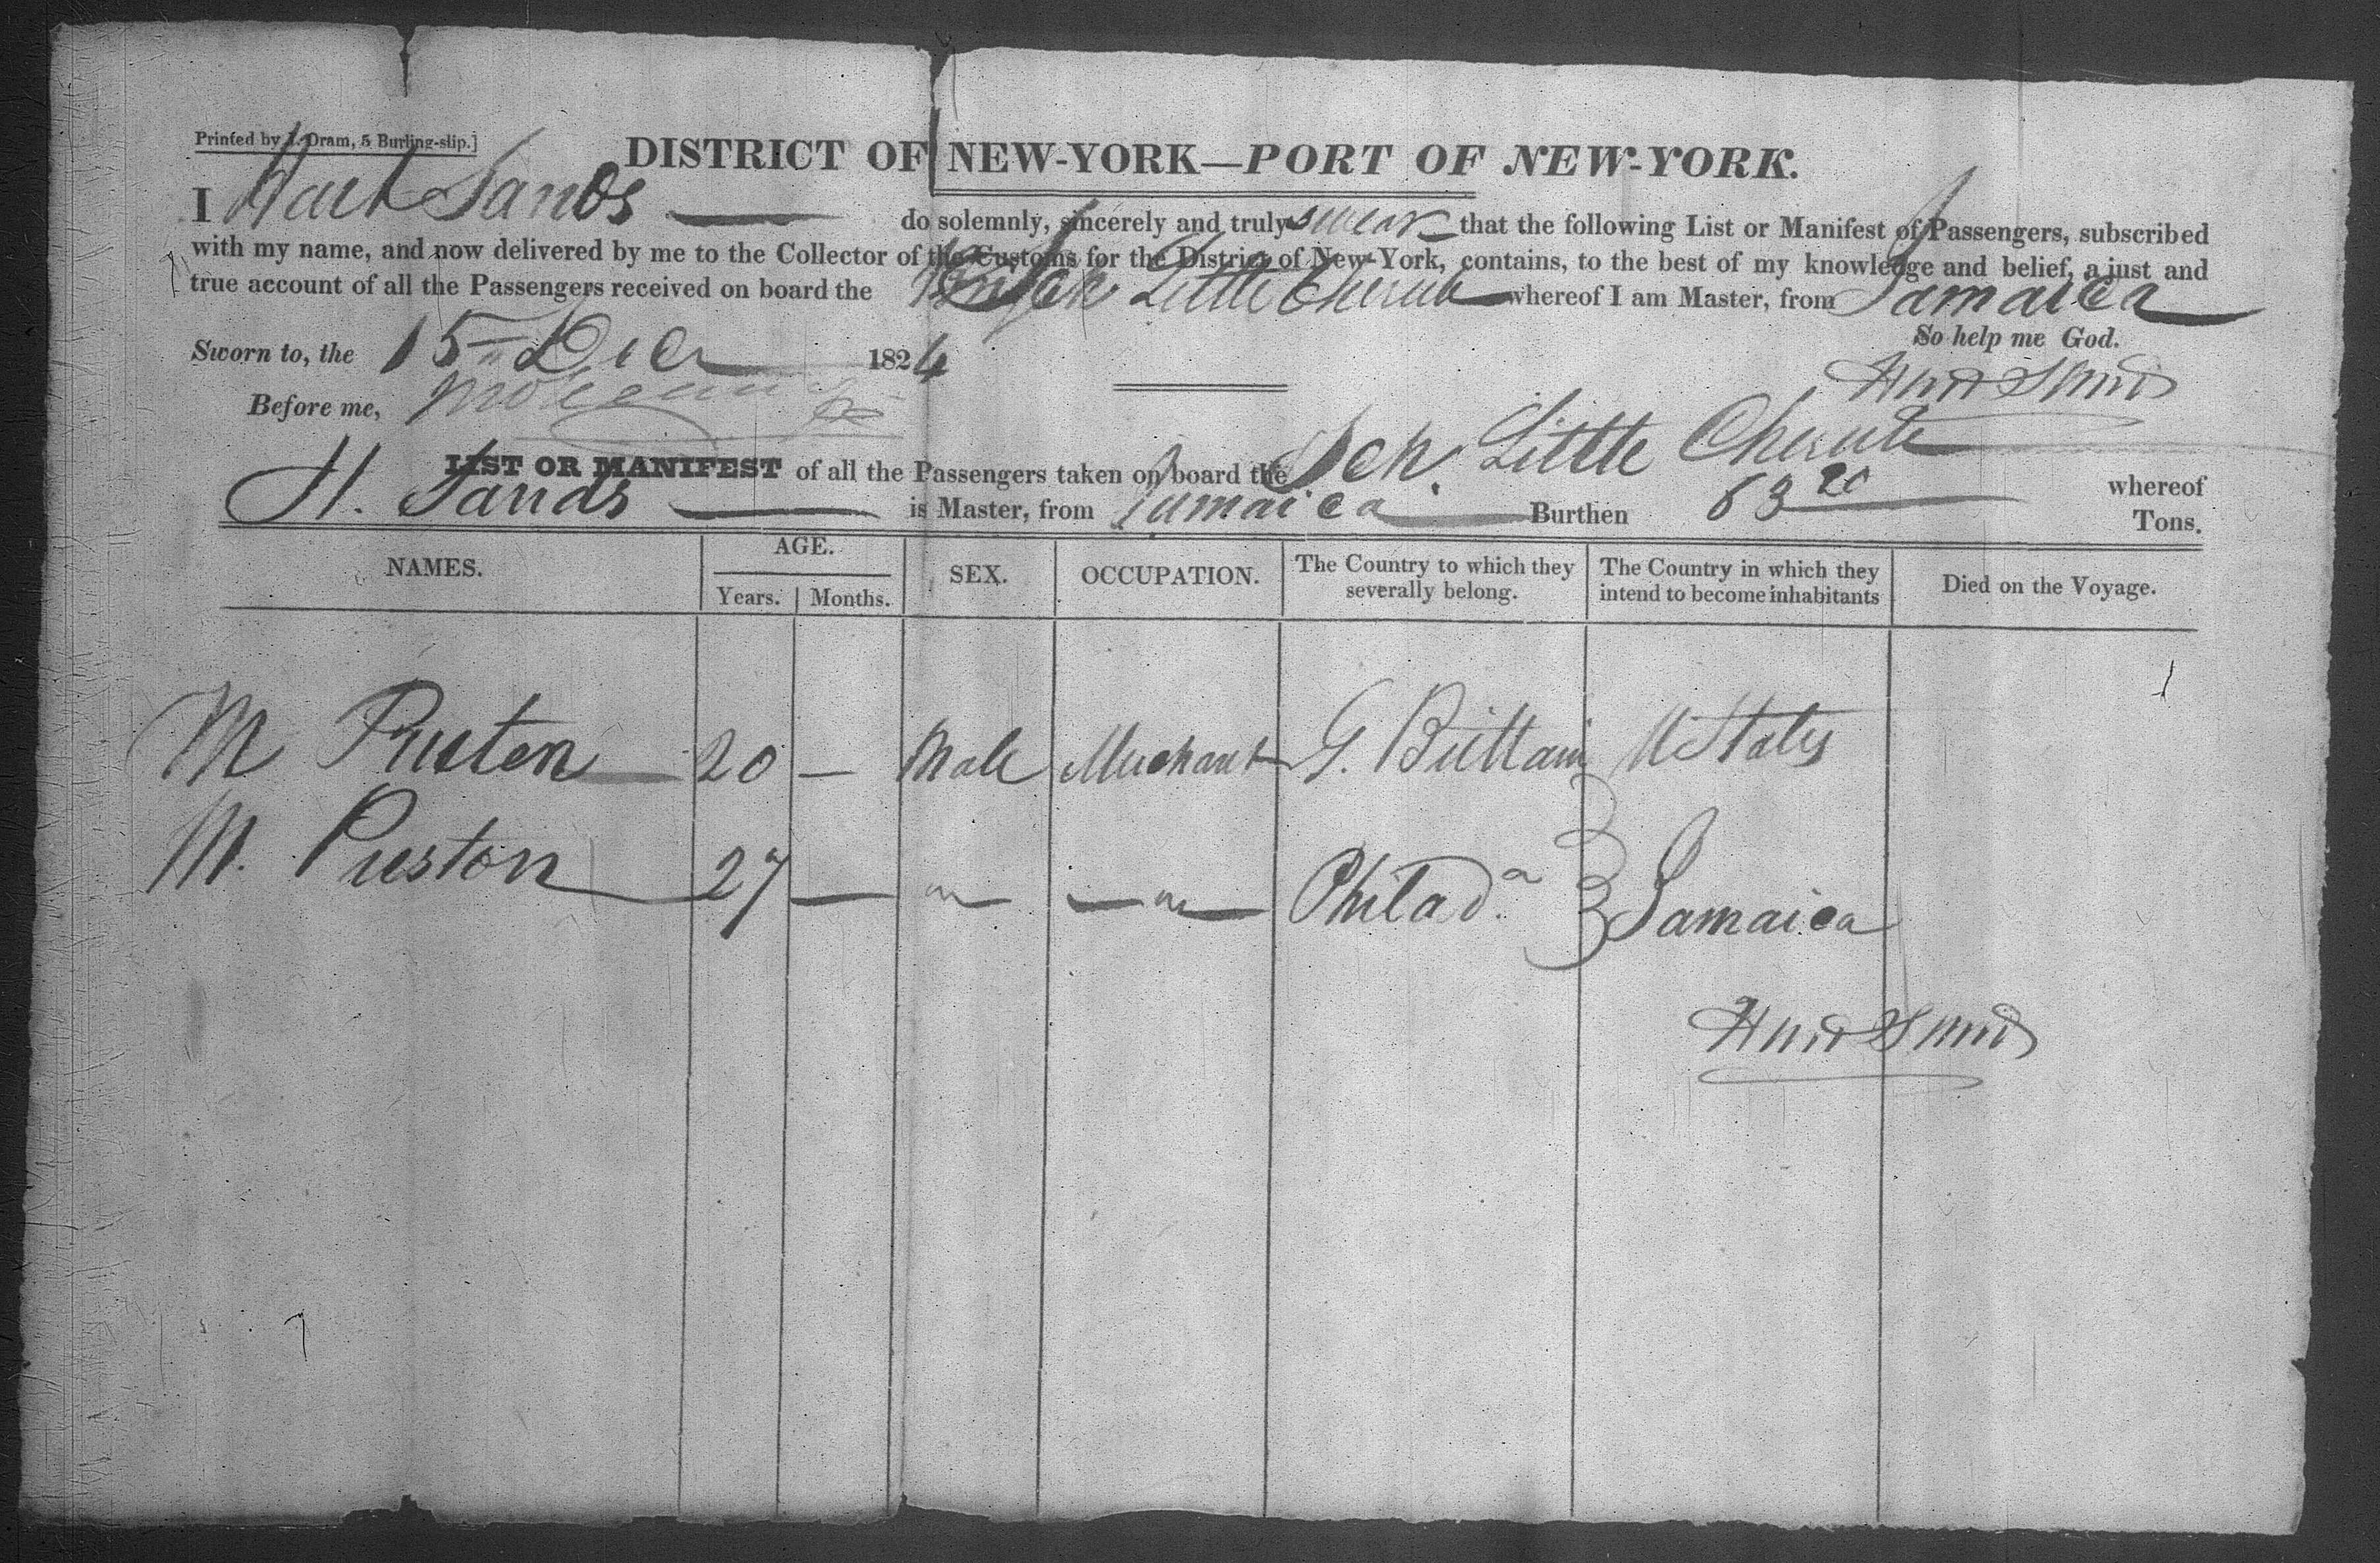 Printed by J. Oram, 5 Burling-slip.]
DISTRICT OF NEW-YORK—PORT OF NEW-YORK.
I Hart Sands do solemnly, sincerely and truly swear that the following List or Manifest of Passengers, subscribed
with my name, and now delivered by me to the Collector of the Customs for the District of New-York, contains, to the best of my knowledge and belief, a just and
true account of all the Passengers received on board the Sch Little Cherub whereof I am Master, from Jamaica
So help me God.
Sworn to, the 15th Decr 1824
Hart Sands
Before me,
LIST OR MANIFEST of all the Passengers taken on board the Sch. Little Cherub whereof
H. Sands is Master, from Jamaica Burthen 63 20 Tons.
NAMES. AGE. Years. Months. SEX. OCCUPATION. The Country to which they severally belong. The Country in which they intend to become inhabitants Died on the Voyage.
M 20 — Male Merchant G. Brittain U States
M. Preston 27 — " — " — Philad.a Jamaica
Hart Sands